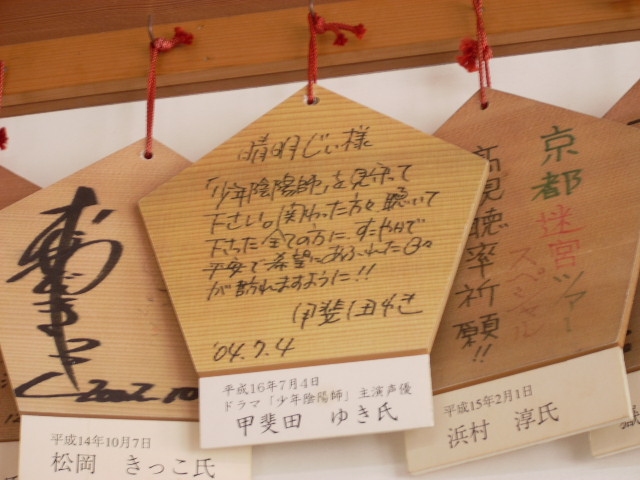 晴明じい様
「少年陰陽師」を見守って
下さい。関わった方々、聴いて
下さった全ての方に、すこやかで
平安で希望にあふれた日々
が訪れますように!!
甲斐田ゆき
'04.7.4
平成16年7月4日
ドラマ「少年陰陽師」主演声優
甲斐田 ゆき氏
2002.10
平成14年10月7日
松岡 きっこ氏
京都迷宮ツアー
スペシャル
高視聴率祈願!!
平成15年2月1日
浜村 淳氏